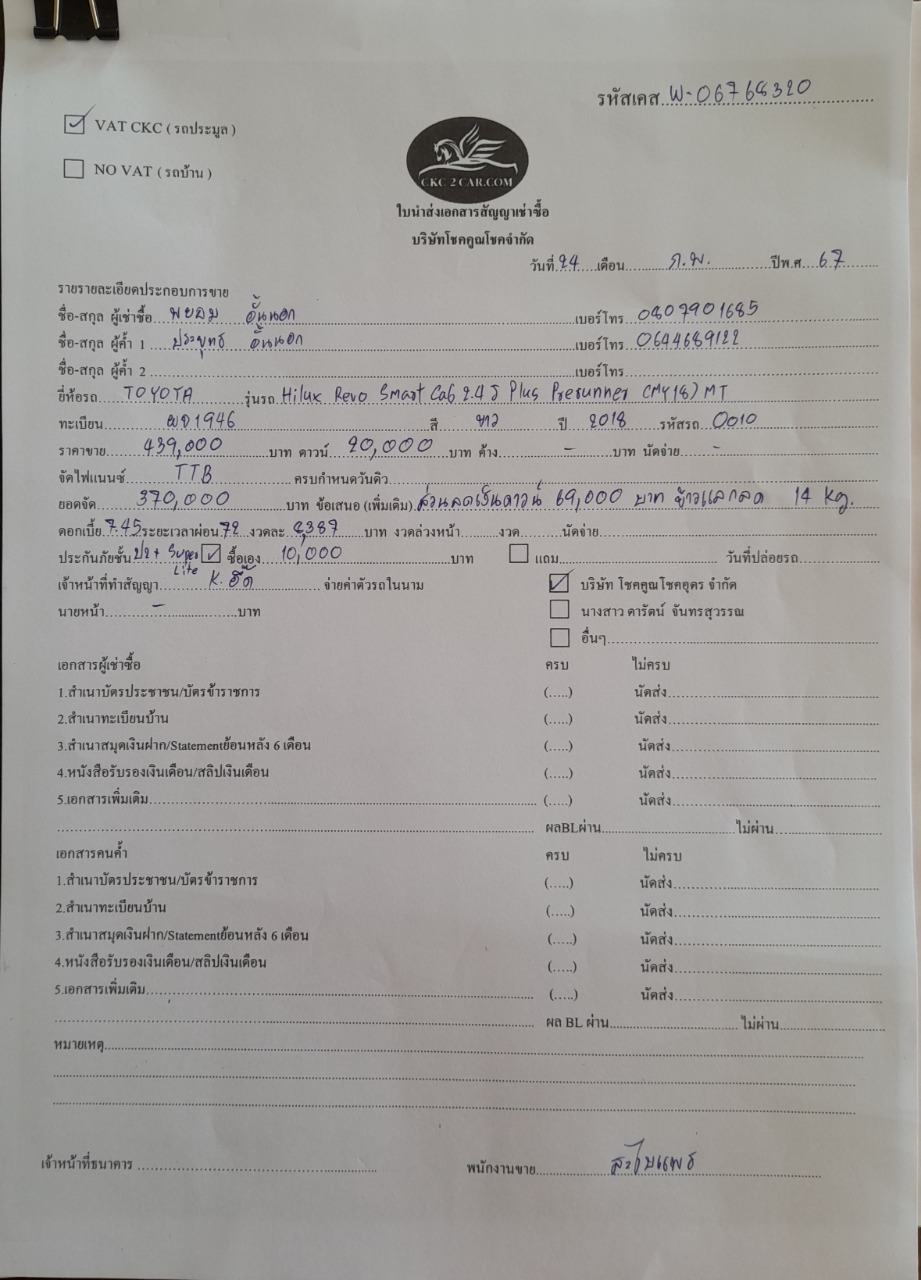 รหัสเคส W-06768320
VAT CKC ( รถประมูล )
NO VAT ( รถบ้าน )
CKC 2 CAR.COM
ใบนำส่งเอกสารสัญญาเช่าซื้อ
บริษัทโชคคูณโชคจำกัด
วันที่ 24 เดือน ก.พ. ปีพ.ศ 67
รายรายละเอียดประกอบการขาย
ชื่อ-สกุล ผู้เช่าซื้อ พยอม อั้นนอก เบอร์โทร 0807901685
ชื่อ-สกุล ผู้ค้ำ 1 ประยุทธ อั้นนอก เบอร์โทร 0644689122
ชื่อ-สกุล ผู้ค้ำ 2 เบอร์โทร
ยี่ห้อรถ TOYOTA รุ่นรถ Hilux Revo Smart Cab 2.4 J Plus Prerunner (MY18) MT
ทะเบียน 1946 สี ขาว ปี 2018 รหัสรถ 0010
ราคาขาย 439,000 บาท ดาวน์ 20,000 บาท ค้าง - บาท นัดจ่าย -
จัดไฟแนนซ์ TTB ครบกำหนดวันดิว
ยอดจัด 370,000 บาท ข้อเสนอ (เพิ่มเติม) ส่วนลดเป็นดาวน์ 69,000 บาท 14 kg.
ดอกเบี้ย 7.45 ระยะเวลาผ่อน 72 งวดละ 8,387 บาท งวดล่วงหน้า งวด นัดจ่าย
ประกันภัยชั้น ป2+ Super Lite ซื้อเอง 10,000 บาท แถม วันที่ปล่อยรถ
เจ้าหน้าที่ทำสัญญา K. อี๊ด จ่ายค่าตัวรถในนาม บริษัท โชคคูณโชคอุดร จำกัด
นายหน้า - บาท นางสาว ดารัตน์ จันทรสุวรรณ
อื่นๆ
เอกสารผู้เช่าซื้อ ครบ ไม่ครบ
1.สำเนาบัตรประชาชน/บัตรข้าราชการ (.....) นัดส่ง
2.สำเนาทะเบียนบ้าน (.....) นัดส่ง
3.สำเนาสมุดเงินฝาก/Statementย้อนหลัง 6 เดือน (.....) นัดส่ง
4.หนังสือรับรองเงินเดือน/สลิปเงินเดือน (.....) นัดส่ง
5.เอกสารเพิ่มเติม (.....) นัดส่ง
ผลBLผ่าน ไม่ผ่าน
เอกสารคนค้ำ ครบ ไม่ครบ
1.สำเนาบัตรประชาชน/บัตรข้าราชการ (.....) นัดส่ง
2.สำเนาทะเบียนบ้าน (.....) นัดส่ง
3.สำเนาสมุดเงินฝาก/Statementย้อนหลัง 6 เดือน (.....) นัดส่ง
4.หนังสือรับรองเงินเดือน/สลิปเงินเดือน (.....) นัดส่ง
5.เอกสารเพิ่มเติม (.....) นัดส่ง
ผล BL ผ่าน ไม่ผ่าน
หมายเหตุ
เจ้าหน้าที่ธนาคาร พนักงานขาย